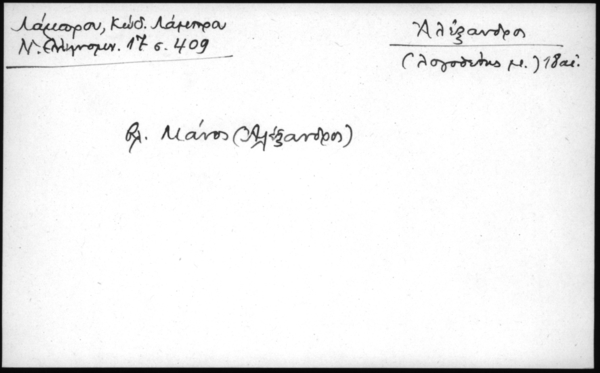 Λάμπρου, Κώδ. Λάμπρου
Ν. Ἑλληνομν. 17 σ. 409
Ἀλέξανδρος
(λογοθέτης μ.) 18 αἰ.
βλ. Μάνος (Ἀλέξανδρος)